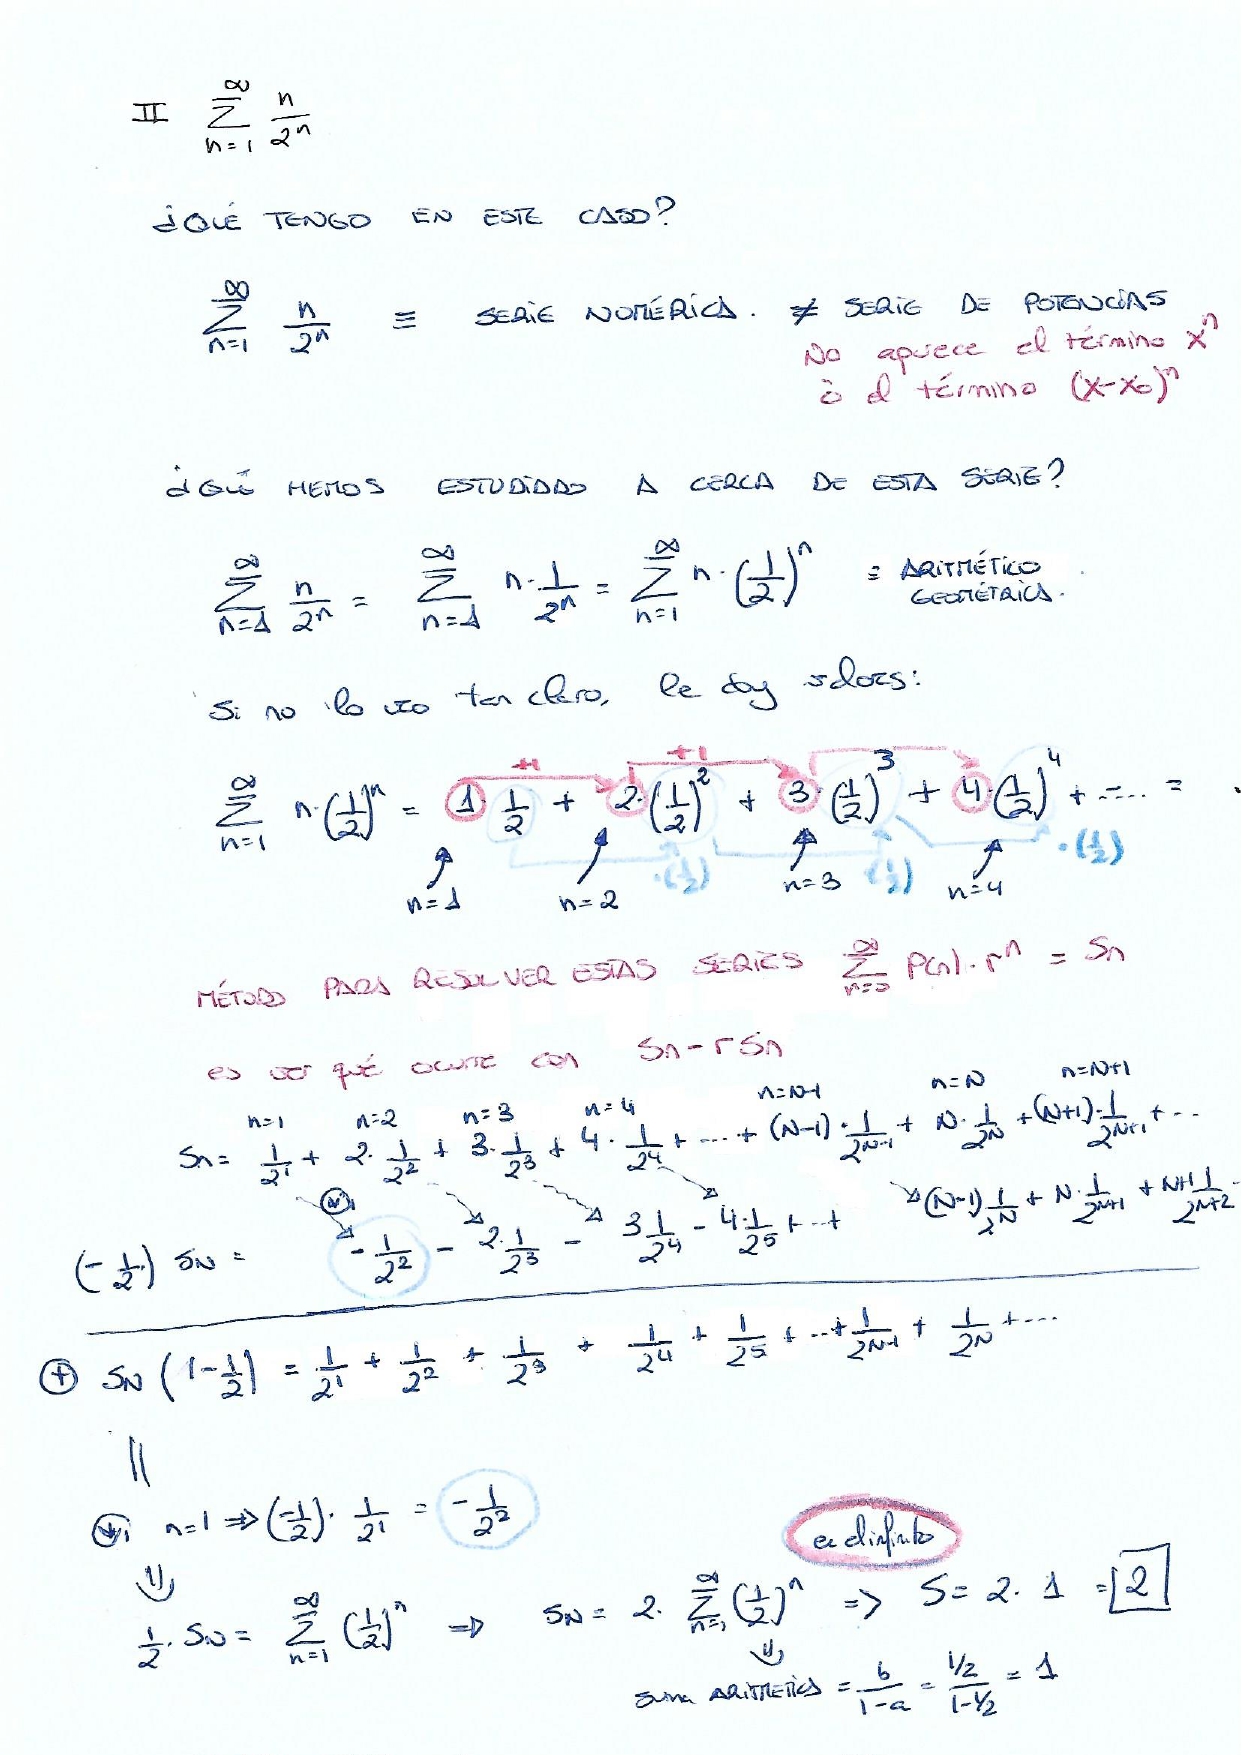 II ∑_{n=1}^{∞} n/2^n
¿QUÉ TENGO EN ESTE CASO?
∑_{n=1}^{∞} n/2^n ≡ SERIE NUMÉRICA. ≠ SERIE DE POTENCIAS
No aparece el término x^n
ó el término (x-x₀)^n
¿QUÉ HEMOS ESTUDIADO A CERCA DE ESTA SERIE?
∑_{n=1}^{∞} n/2^n = ∑_{n=1}^{∞} n·1/2^n = ∑_{n=1}^{∞} n·(1/2)^n = ARITMÉTICO
GEOMÉTRICA.
Si no lo veo tan claro, le doy valores:
+1 +1
∑_{n=1}^{∞} n·(1/2)^n = 1·1/2 + 2·(1/2)^2 + 3·(1/2)^3 + 4·(1/2)^4 + ..... =
·(1/2) (1/2) ·(1/2)
n=1 n=2 n=3 n=4
MÉTODO PARA RESOLVER ESTAS SERIES ∑_{n=0}^{∞} P(n)·r^n = Sn
es ver qué ocurre con Sn-rSn
n=1 n=2 n=3 n=4 n=N-1 n=N n=N+1
Sn = 1/2^1 + 2·1/2^2 + 3·1/2^3 + 4·1/2^4 + ... + (N-1)·1/2^{N-1} + N·1/2^N + (N+1)·1/2^{N+1} + ...
(-1/2) SN = -1/2^2 - 2·1/2^3 - 3 1/2^4 - 4·1/2^5 + ..+ (N-1) 1/2^N + N·1/2^{N+1} + N+1 1/2^{N+2}
⊕ SN (1-1/2) = 1/2^1 + 1/2^2 + 1/2^3 + 1/2^4 + 1/2^5 + ..+ 1/2^{N-1} + 1/2^N + ...
||
n=1 ⇒ (-1/2)·1/2^1 = -1/2^2
en el infinito
1/2·SN = ∑_{n=1}^{∞} (1/2)^n ⇒ SN = 2·∑_{n=1}^{∞} (1/2)^n ⇒ S = 2·1 = 2
suma ARITMETICA = b/(1-a) = (1/2)/(1-1/2) = 1